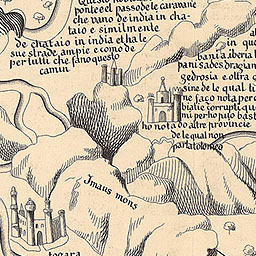 Questo
ponte el passo de le carauane
che uano de india in cha
taio e similmente
de chataio in india et ha le
sue strade, ample, e como de
per tutti che fano questo
camin
in que
bania, iberia
pani sades dragian
gedrosia e oltra
sine de le qual
ne faço nota per
bitie corrupt
mi per ho pijo bast
ho nota do altre prouincie
de le qual non
parla tolomeo
Jmaus mons
togara